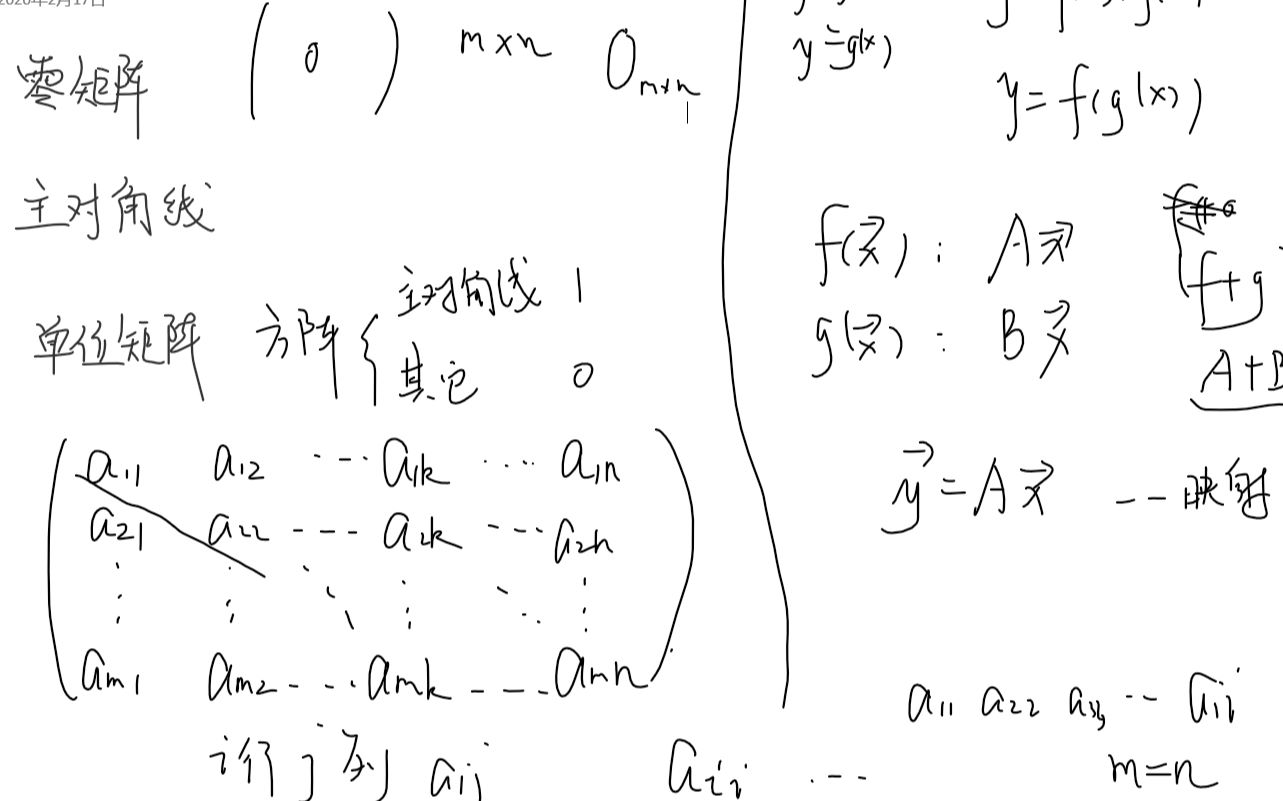 2020年2月17日
零矩阵 ( 0 ) m×n O_{m×n}
主对角线
单位矩阵 方阵 { 主对角线 1
其它 0
a_{11} a_{12} ... a_{1k} .... a_{1n}
a_{21} a_{22} ... a_{2k} ... a_{2n}
⋮ ⋮ ⋱ ⋮ ⋱ ⋮
a_{m1} a_{m2} ... a_{mk} ... a_{mn}
i行 j列 a_{ij} a_{ii} ...
y=g(x)
y=f(g(x))
f(\vec{x}) : A\vec{x}
f+g
g(\vec{x}) : B\vec{x}
A+B
\vec{y}=A\vec{x} -- 映射
a_{11} a_{22} a_{33} ... a_{ii}
m=n